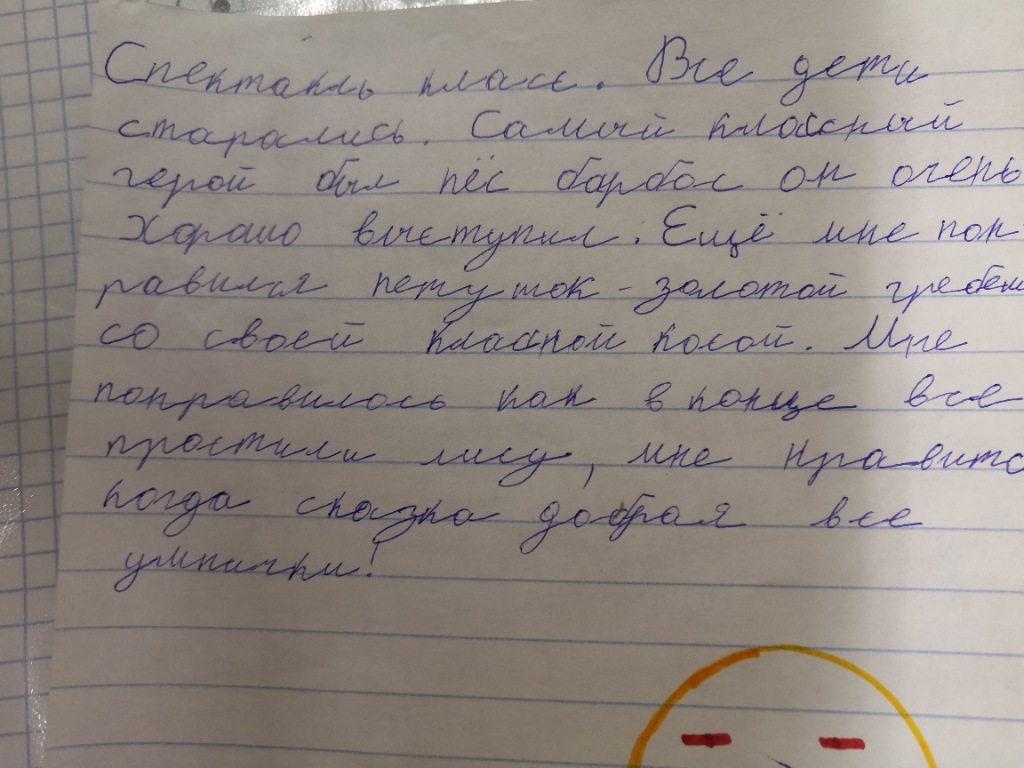 Спектакль класс. Все дети
старались. Самый классный
герой был пёс барбос он очень
хорошо выступил. Ещё мне пон-
равился петушок - золотой гребеш
со своей классной косой. Мне
понравилось как в конце все
простили лису, мне нравитс
когда сказка добрая все
умнички!